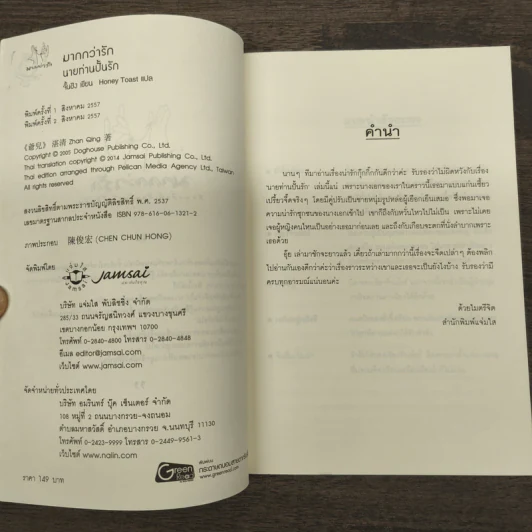 มากกว่ารัก
นายท่านปั้นรัก
จั้นชิง เขียน Honey Toast แปล
พิมพ์ครั้งที่ 1 สิงหาคม 2557
พิมพ์ครั้งที่ 2 สิงหาคม 2557
《爺兒》 湛清 Zhan Qing 著
Copyright © 2005 Doghouse Publishing Co., Ltd.
Thai translation copyright © 2014 Jamsai Publishing Co., Ltd.
Thai edition arranged through Pelican Media Agency Ltd., Taiwan.
All rights reserved.
สงวนลิขสิทธิ์ตามพระราชบัญญัติลิขสิทธิ์ พ.ศ. 2537
เลขมาตรฐานสากลประจำหนังสือ ISBN 978-616-06-1321-2
ภาพประกอบ 陳俊宏 (CHEN CHUN HONG)
จัดพิมพ์โดย
jamsai
บริษัท แจ่มใส พับลิชชิ่ง จำกัด
285/33 ถนนจรัญสนิทวงศ์ แขวงบางขุนศรี
เขตบางกอกน้อย กรุงเทพฯ 10700
โทรศัพท์ 0-2840-4800 โทรสาร 0-2840-4848
อีเมล editor@jamsai.com
เว็บไซต์ www.jamsai.com
จัดจำหน่ายทั่วประเทศโดย
บริษัท อมรินทร์ บุ๊ค เซ็นเตอร์ จำกัด
108 หมู่ที่ 2 ถนนบางกรวย-จงถนอม
ตำบลมหาสวัสดิ์ อำเภอบางกรวย จ.นนทบุรี 11130
โทรศัพท์ 0-2423-9999 โทรสาร 0-2449-9561-3
เว็บไซต์ www.naiin.com
Green Read
พิมพ์ด้วย
กระดาษถนอมสายตา
www.greenread.com
ราคา 149 บาท
คำนำ
นานๆ ทีมาอ่านเรื่องน่ารักกุ๊กกิ๊กกันดีกว่าค่ะ รับรองว่าไม่ผิดหวังกับเรื่อง
นายท่านปั้นรัก เล่มนี้แน่ เพราะนางเอกของเราในคราวนี้เธอมาแบบแก่นเซี้ยว
เปรี้ยวจี๊ดจริงๆ โดยมีคู่ปรับเป็นชายหนุ่มรูปหล่อผู้เยือกเย็นเสมอ ซึ่งพอมาเจอ
ความน่ารักซุกซนของนางเอกเข้าไป เขาก็ถึงกับหวั่นไหวไปไม่เป็น เพราะไม่เคย
เจอผู้หญิงคนไหนเป็นอย่างเธอมาก่อนเลย และถึงกับเกือบจะตกที่นั่งลำบากเพราะ
เธอด้วย
อุ๊ย เล่ามาซักจะยาวแล้ว เดี๋ยวถ้าเล่ามากกว่านี้เรื่องจะจืดเปล่าๆ ต้องพลิก
ไปอ่านกันเองดีกว่าค่ะว่าเรื่องราวระหว่างเขาและเธอจะเป็นยังไงบ้าง รับรองว่ามี
ครบทุกอารมณ์แน่นอนค่ะ
ด้วยไมตรีจิต
สำนักพิมพ์แจ่มใส